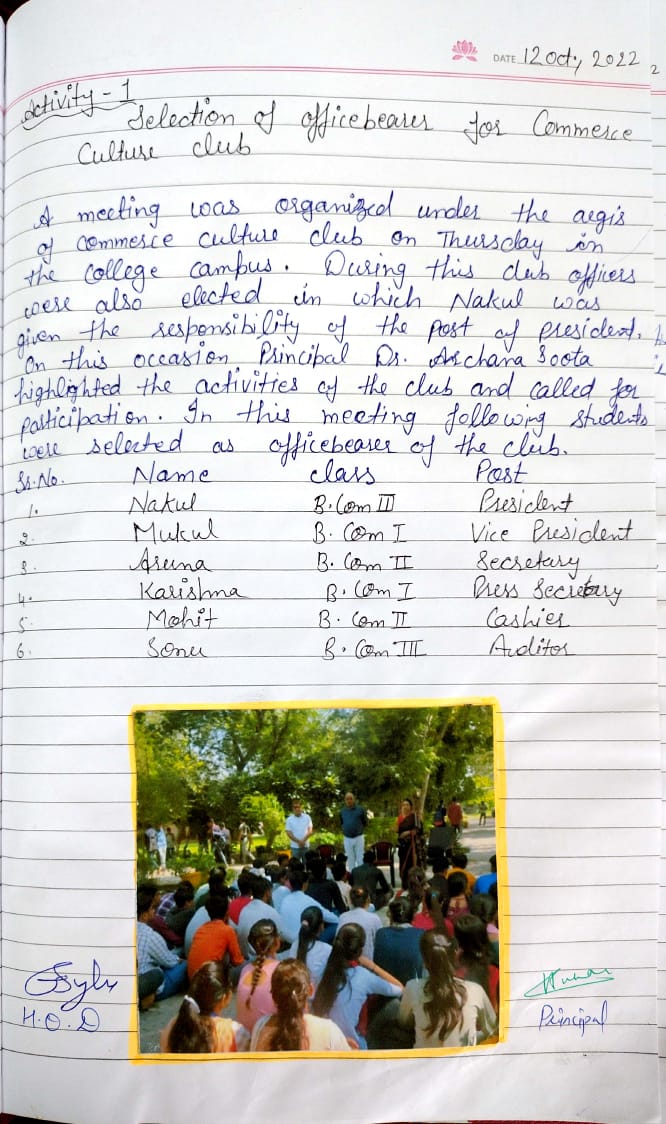 DATE 12 Oct, 2022
Activity - 1
Selection of officebearer for Commerce
Culture club
A meeting was organized under the aegis
of commerce culture club on Thursday in
the college campus. During this club officers
were also elected in which Nakul was
given the responsibility of the post of president.
On this occasion Principal Dr. Archana Soota
highlighted the activities of the club and called for
participation. In this meeting following students
were selected as officebearer of the club.
Sr. No. Name class Post
1. Nakul B. Com III President
2. Mukul B. Com I Vice President
3. Aruna B. Com II Secretary
4. Karishma B. Com I Press Secretary
5. Mohit B. Com II Cashier
6. Sonu B. Com III Auditor
H.O.D
Principal